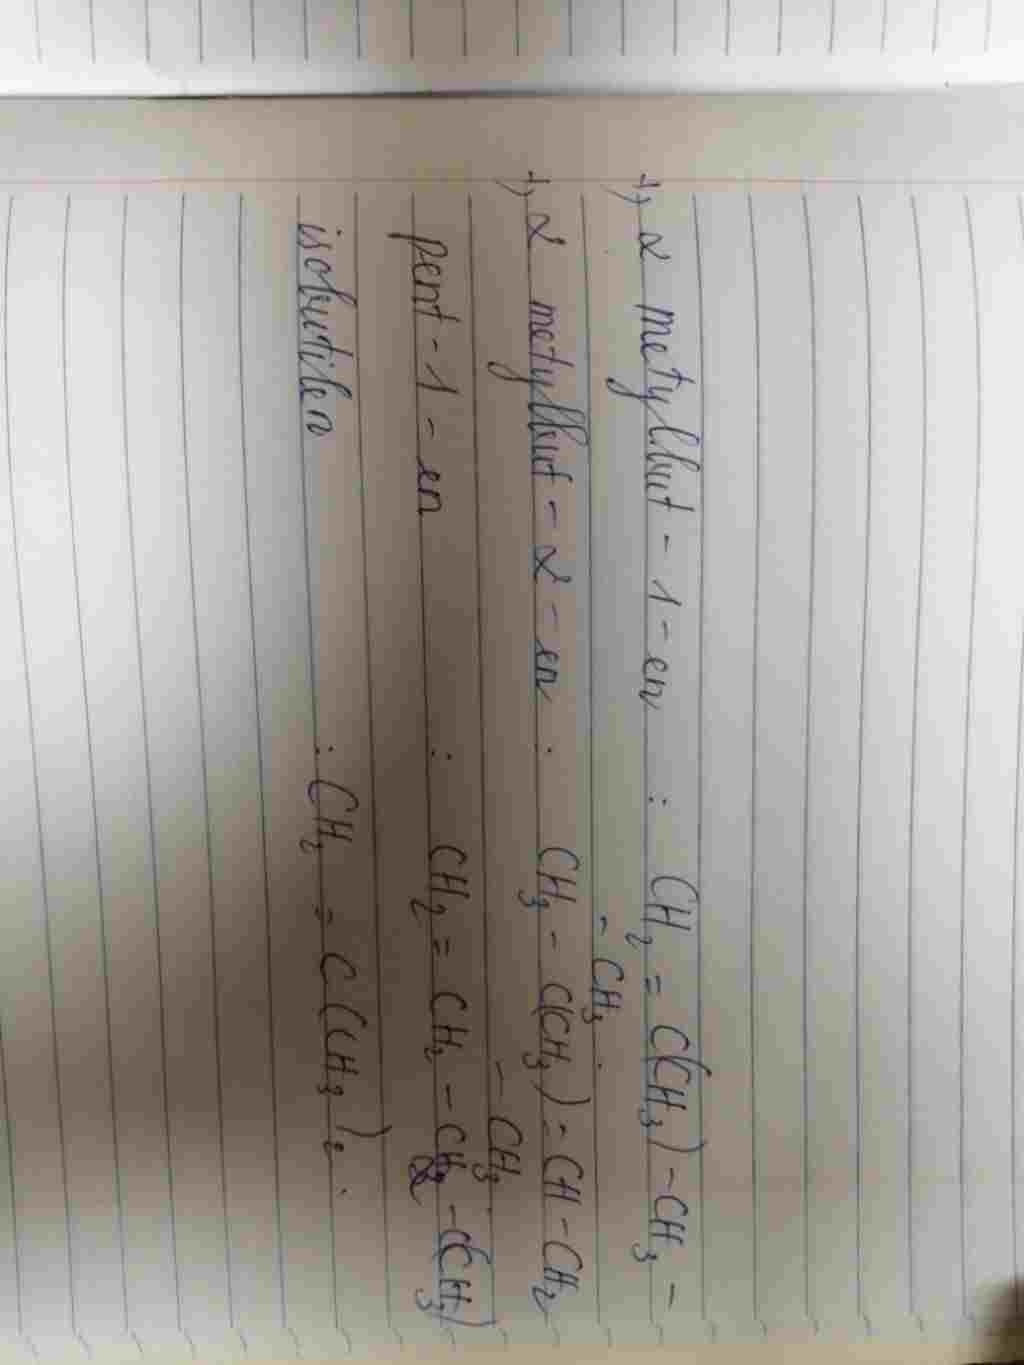 +, 2 metylbut - 1 - en : CH₂ = C(CH₃) - CH₃ -
- CH₃.
+, 2 metylbut - 2 - en : CH₃ - C(CH₃) = CH - CH₂
- CH₃.
pent - 1 - en : CH₂ = CH₂ - CH₂ - C(CH₃)
isobutilen : CH₂ = C(CH₃)₂.